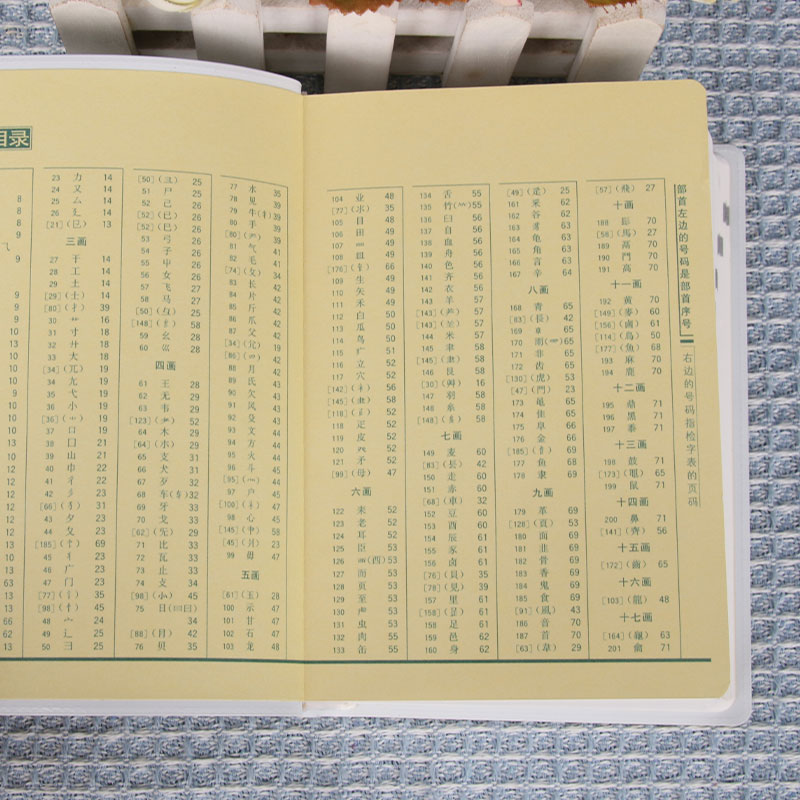 目录
8
8
8
9
9
9
9
10
10
23 力 14
24 又 14
25 厶 14
26 廴 14
[21] (㔾) 13
三画
27 干 14
28 工 14
29 土 14
[29] (士) 14
[80] (扌) 39
30 艹 16
31 寸 18
32 廾 18
33 大 18
[34] (兀) 19
34 尤 19
35 弋 19
36 小 19
37 口 19
38 囗 21
39 山 21
40 巾 22
41 彳 22
42 彡 23
[66] (犭) 31
43 夕 23
44 夂 23
[185] (饣) 69
45 丬 23
46 广 23
47 门 23
[77] (氵) 35
[98] (忄) 45
48 宀 24
49 辶 25
50 彐 25
[50] (彑) 25
51 尸 25
52 己 26
[52] (已) 26
[52] (巳) 26
53 弓 26
54 子 26
55 屮 26
56 女 26
57 飞 27
58 马 27
[148] (纟) 58
59 幺 28
60 巛 28
四画
61 王 28
62 无 29
63 韦 29
[123] (耂) 52
64 木 29
[64] (朩) 29
65 支 31
66 犬 31
67 歹 32
68 车 32
69 牙 33
70 戈 33
[62] (旡) 29
71 比 33
72 瓦 33
73 止 33
74 攴 34
[98] (㣺) 45
75 日 34
[88] (月) 42
76 贝 35
77 水 35
78 见 39
79 牛 39
80 手 39
81 气 41
82 毛 42
[74] (攵) 34
83 长 42
84 片 42
85 斤 42
86 爪 42
87 父 42
88 月 42
89 氏 43
90 欠 43
91 风 43
92 殳 43
93 文 43
94 方 44
95 火 44
96 斗 45
[95] (灬) 44
97 户 45
[100] (礻) 47
98 心 45
99 毋 47
五画
[61] (玉) 28
100 示 47
101 甘 47
102 石 47
103 龙 48
104 业 48
[77] (氺) 35
105 目 48
106 田 49
107 罒 49
108 皿 49
[176] (钅) 66
109 生 49
110 矢 49
111 禾 49
112 白 50
113 瓜 50
114 鸟 50
115 疒 51
116 立 52
117 穴 52
[142] (衤) 56
118 疋 52
119 皮 52
120 癶 52
121 矛 52
[99] (母) 47
六画
122 耒 52
123 老 52
124 耳 52
125 臣 53
126 覀(西) 53
127 而 53
128 页 53
129 至 53
130 虍 53
131 虫 53
132 肉 55
133 缶 55
134 舌 55
135 竹(⺮) 55
136 臼 55
137 自 56
138 血 56
139 舟 56
140 色 56
141 齐 56
142 衣 56
143 羊 57
144 米 57
145 聿 58
146 艮 58
147 羽 58
148 糸 58
七画
149 麦 60
[83] (镸) 42
150 走 60
151 赤 60
[68] (車) 32
152 豆 60
153 酉 60
154 辰 61
155 豕 61
156 卤 61
[76] (貝) 35
[78] (見) 39
157 里 61
158 足 61
159 邑 62
160 身 62
[49] (辵) 25
161 釆 62
162 谷 62
163 豸 63
164 龟 63
165 角 63
166 言 63
167 辛 64
八画
168 青 65
[83] (長) 42
169 卓 65
170 雨(⻗) 65
171 非 65
172 齿 65
[130] (虎) 53
[47] (門) 23
173 黾 65
174 隹 65
175 阜 66
176 金 66
[185] (飠) 69
177 鱼 68
178 隶 69
九画
179 革 69
[128] (頁) 53
180 面 69
181 韭 69
182 骨 69
183 香 69
184 鬼 69
185 食 69
[91] (風) 43
186 音 70
187 首 70
[63] (韋) 29
[57] (飛) 27
十画
188 髟 70
[58] (馬) 27
189 鬲 70
190 鬥 70
191 高 70
十一画
192 黄 70
[149] (麥) 60
[156] (鹵) 61
[114] (鳥) 50
[177] (魚) 68
193 麻 70
194 鹿 70
十二画
195 鼎 71
196 黑 71
197 黍 71
十三画
198 鼓 71
[173] (黽) 65
199 鼠 71
十四画
200 鼻 71
[141] (齊) 56
十五画
[172] (齒) 65
十六画
[103] (龍) 48
十七画
[164] (龜) 63
201 龠 71
部首左边的号码是部首序号
右边的号码指检字表的页码